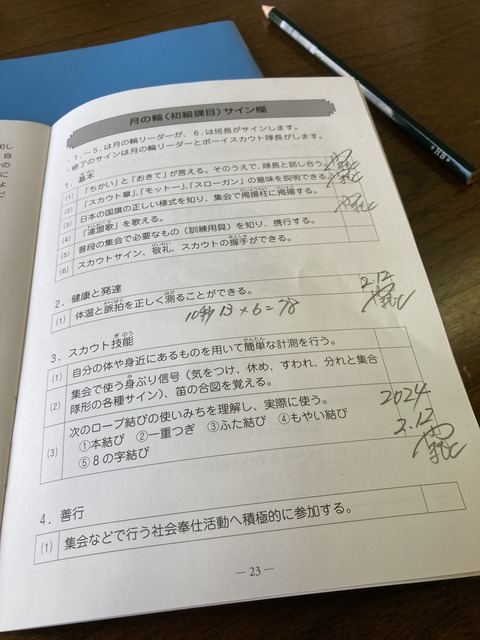 月の輪〈初級課目〉サイン欄
・1.～5.は月の輪リーダーが、6.は班長がサインします。
・修了のサインは月の輪リーダーとボーイスカウト隊長がします。
1. 基本
(1) 「ちかい」と「おきて」が言える。そのうえで、隊長と話し合う。
(2) 「スカウト章」、「モットー」、「スローガン」の意味を説明できる。
(3) 日本の国旗の正しい様式を知り、集会で掲揚柱に掲揚する。
(4) 「連盟歌」を歌える。
(5) 普段の集会で必要なもの（訓練用具）を知り、携行する。
(6) スカウトサイン、敬礼、スカウトの握手ができる。
2. 健康と発達
2.12
(1) 体温と脈拍を正しく測ることができる。
10秒 13×6=78
3. スカウト技能
(1) 自分の体や身近にあるものを用いて簡単な計測を行う。
(2) 集会で使う身ぶり信号（気をつけ、休め、すわれ、分れと集合
隊形の各種サイン）、笛の合図を覚える。
(3) 次のロープ結びの使いみちを理解し、実際に使う。
2024
①本結び ②一重つぎ ③ふた結び ④もやい結び
2.12
⑤8の字結び
4. 善行
(1) 集会などで行う社会奉仕活動へ積極的に参加する。
— 23 —
HB